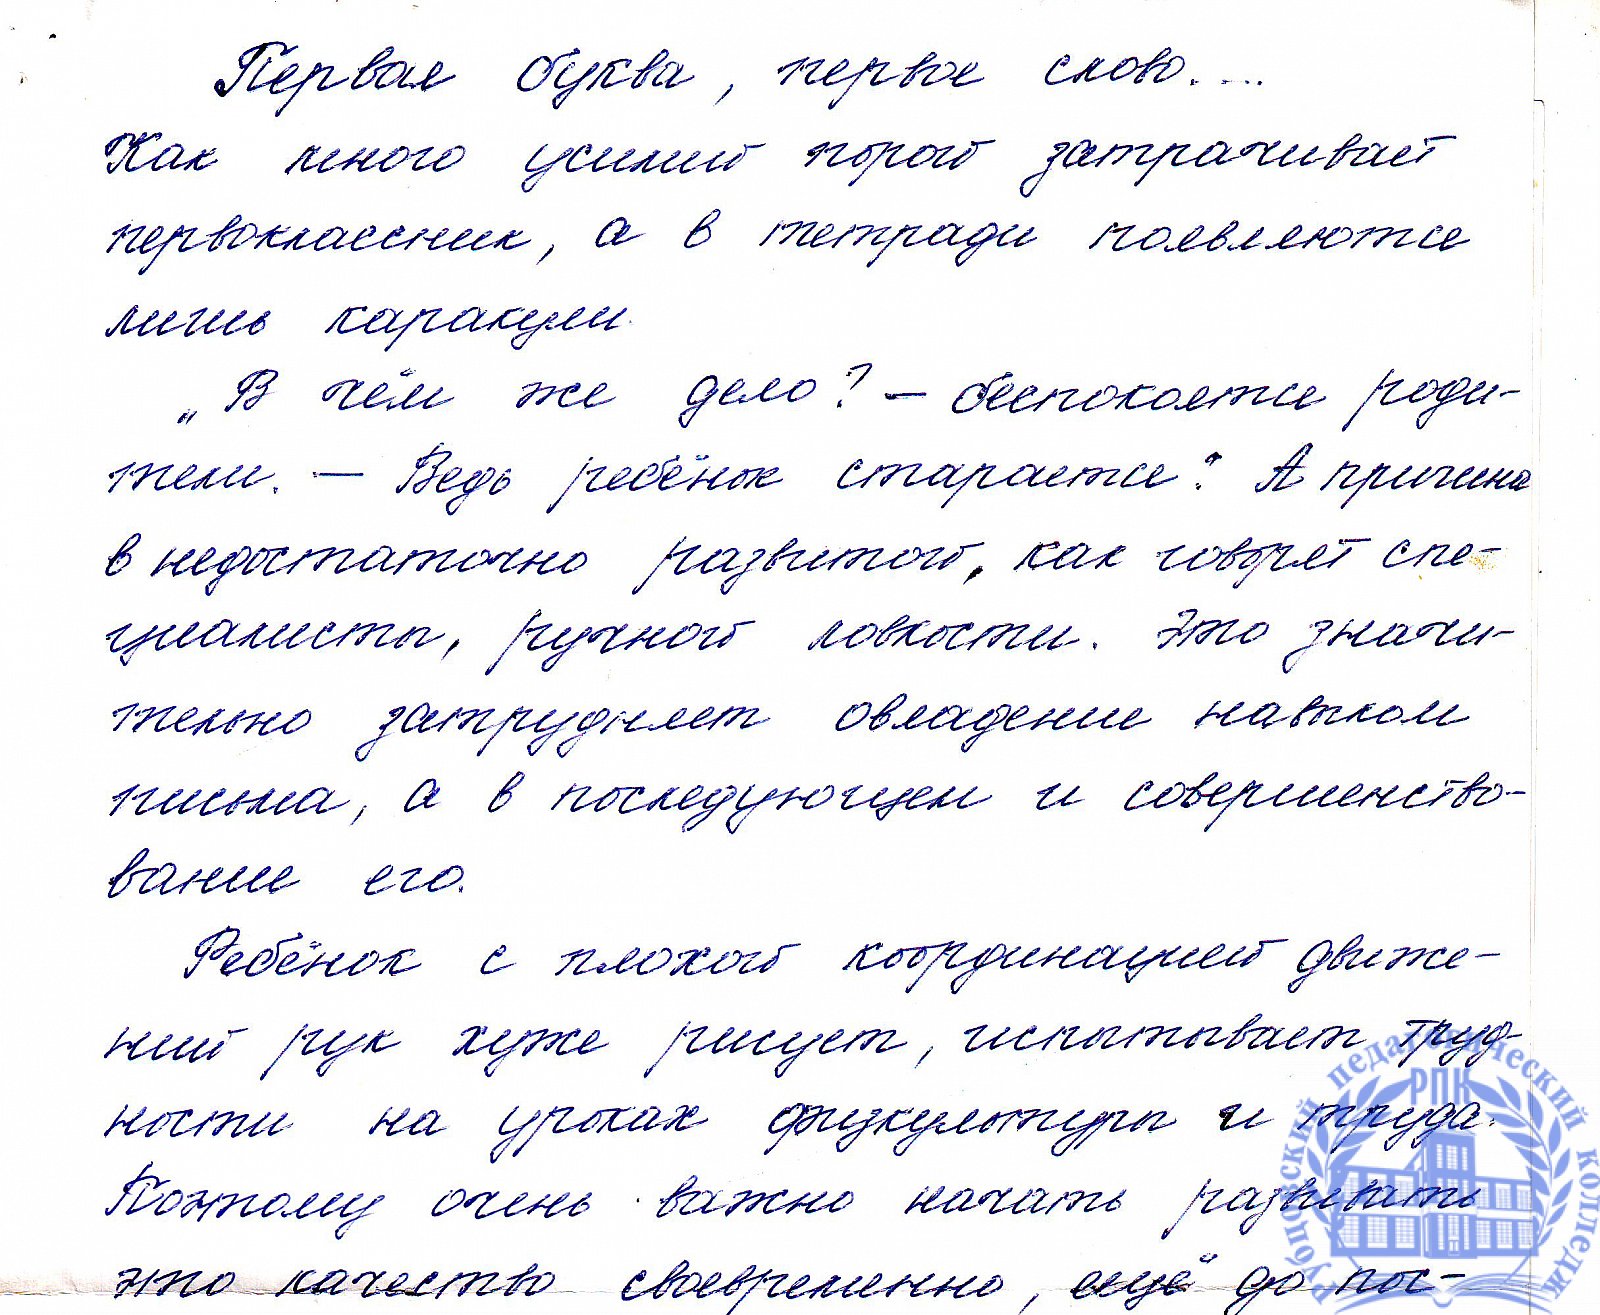 Первая буква, первое слово....
Как много усилий порой затрачивает
первоклассник, а в тетради появляются
лишь каракули.
„В чём же дело? — беспокоятся роди-
тели. — Ведь ребёнок старается". А причина
в недостаточно развитой, как говорят спе-
циалисты, ручной ловкости. Это значи-
тельно затрудняет овладение навыком
письма, а в последующем и совершенство-
вание его.
Ребёнок с плохой координацией движе-
ний рук хуже рисует, испытывает труд-
ности на уроках физкультуры и труда.
Поэтому очень важно начать развивать
это качество своевременно, ещё до пос-
Рубцовский педагогический колледж
РПК